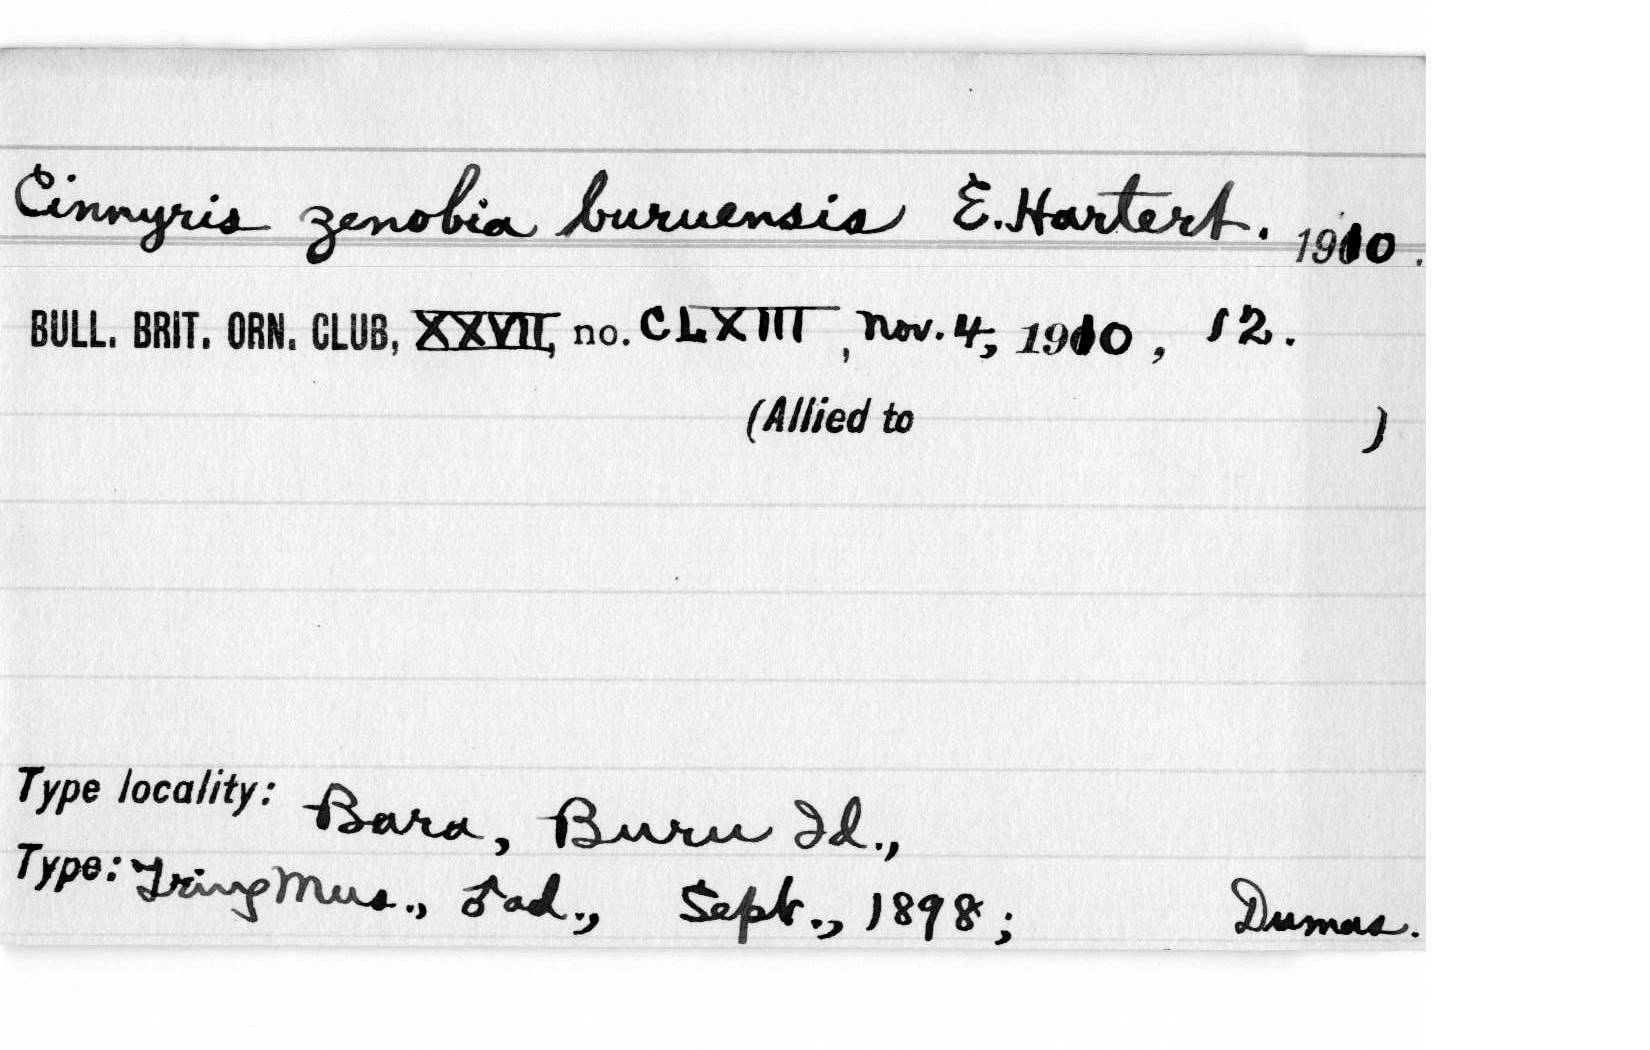 Cinnyris zenobia buruensis E. Hartert. 1910.
BULL. BRIT. ORN. CLUB, XXVII, no. CLXIII, Nov. 4, 1910, 12.
(Allied to )
Type locality: Bara, Buru Id.,
Type: Tring Mus., ♂ ad., Sept., 1898; Dumas.